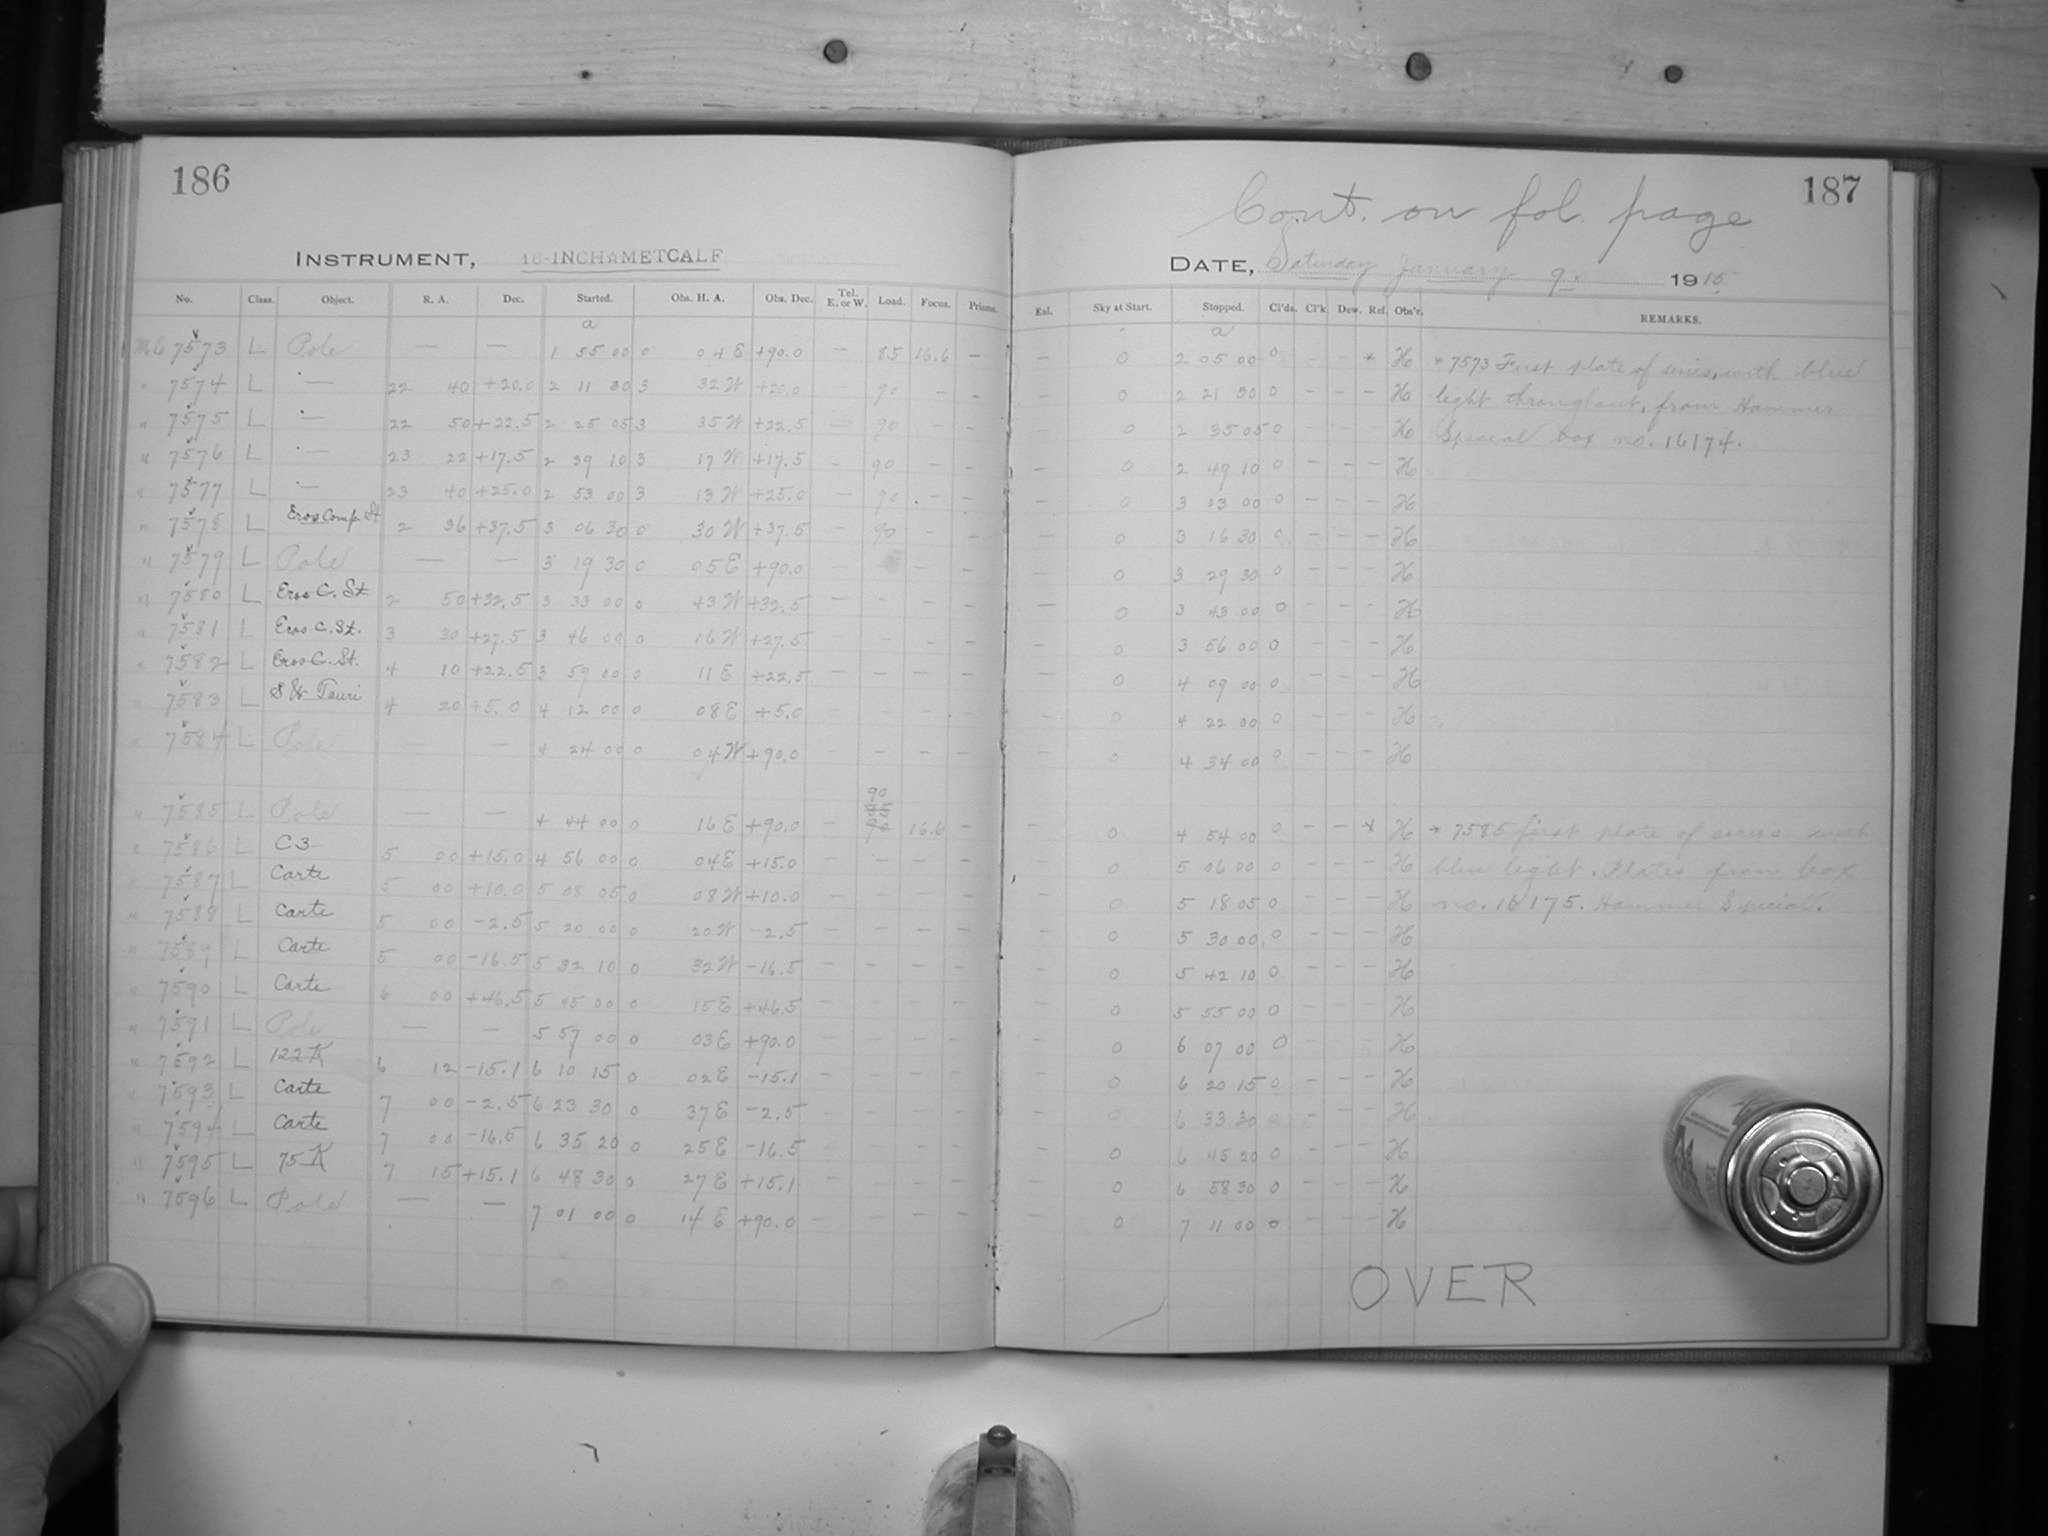 186
INSTRUMENT, 16-INCH METCALF
No. Class. Object. R. A. Dec. Started. Obs. H. A. Obs. Dec. Tel. E. or W. Load. Focus. Prisms.
a
MC 7573 L Pole — — 1 55 00 0 04 E +90.0 – 85 16.6 –
" 7574 L — 22 40 +20.0 2 11 30 3 32 W +20.0 90 – –
" 7575 L — 22 50 +22.5 2 25 05 3 35 W +22.5 – 90 – –
" 7576 L — 23 22 +17.5 2 39 10 3 17 W +17.5 – 90 – –
" 7577 L — 23 40 +25.0 2 53 00 3 13 W +25.0 – 90 – –
" 7578 L Eros Comp. St. 2 36 +37.5 3 06 30 0 30 W +37.5 – 90 – –
" 7579 L Pole — — 3 19 30 0 05 E +90.0 – – –
" 7580 L Eros C. St. 2 50 +32.5 3 33 00 0 43 W +32.5 – – – –
" 7581 L Eros C. St. 3 30 +27.5 3 46 00 0 16 W +27.5 – – – –
" 7582 L Eros C. St. 4 10 +22.5 3 59 00 0 11 E +22.5 – – – –
" 7583 L S W Tauri 4 20 +5.0 4 12 00 0 08 E +5.0 – – –
" 7584 L Pole — — 4 24 00 0 04 W +90.0 – – – –
90
" 7585 L Pole — — 4 44 00 0 16 E +90.0 – 90 16.6 –
" 7586 L C3 5 00 +15.0 4 56 00 0 04 E +15.0 – – – –
" 7587 L Carte 5 00 +10.0 5 08 05 0 08 W +10.0 – – – –
" 7588 L Carte 5 00 -2.5 5 20 00 0 20 W -2.5 – – – –
" 7589 L Carte 5 00 -16.5 5 32 10 0 32 W -16.5 – – – –
" 7590 L Carte 6 00 +46.5 5 45 00 0 15 E +46.5 – – – –
" 7591 L Pole — — 5 57 00 0 03 E +90.0 – – – –
" 7592 L 122 K 6 12 -15.1 6 10 15 0 02 E -15.1 – – – –
" 7593 L Carte 7 00 -2.5 6 23 30 0 37 E -2.5 – – – –
" 7594 L Carte 7 00 -16.5 6 35 20 0 25 E -16.5 – – – –
" 7595 L 75 K 7 15 +15.1 6 48 30 0 27 E +15.1 – – – –
" 7596 L Pole — — 7 01 00 0 14 E +90.0 – – – –
187
Cont. on fol. page
DATE, Saturday January 9 1915
Eal. Sky at Start. Stopped. Cl'ds. Cl'k Dew. Ref. Obs'r. REMARKS.
a
– 0 2 05 00 0 – – * H * 7573 First plate of series, with blue
– 0 2 21 30 0 – – – H light throughout, from Hammer
– 0 2 35 05 0 – – – H Special box no. 16174.
– 0 2 49 10 0 – – – H
– 0 3 03 00 0 – – – H
– 0 3 16 30 0 – – – H
– 0 3 29 30 0 – – – H
– 0 3 43 00 0 – – – H
– 0 3 56 00 0 – – – H
– 0 4 09 00 0 – – – H
– 0 4 22 00 0 – – – H
0 4 34 00 0 – – – H
– 0 4 54 00 0 – – * H * 7585 first plate of series with
0 5 06 00 0 – – – H blue light. Plates from box
– 0 5 18 05 0 – – – H no. 16175. Hammer Special.
– 0 5 30 00 0 – – – H
– 0 5 42 10 0 – – – H
– 0 5 55 00 0 – – – H
– 0 6 07 00 0 – – – H
– 0 6 20 15 0 – – – H
– 0 6 33 30 0 – – – H
– 0 6 45 20 0 – – – H
– 0 6 58 30 0 – – – H
– 0 7 11 00 0 – – – H
OVER